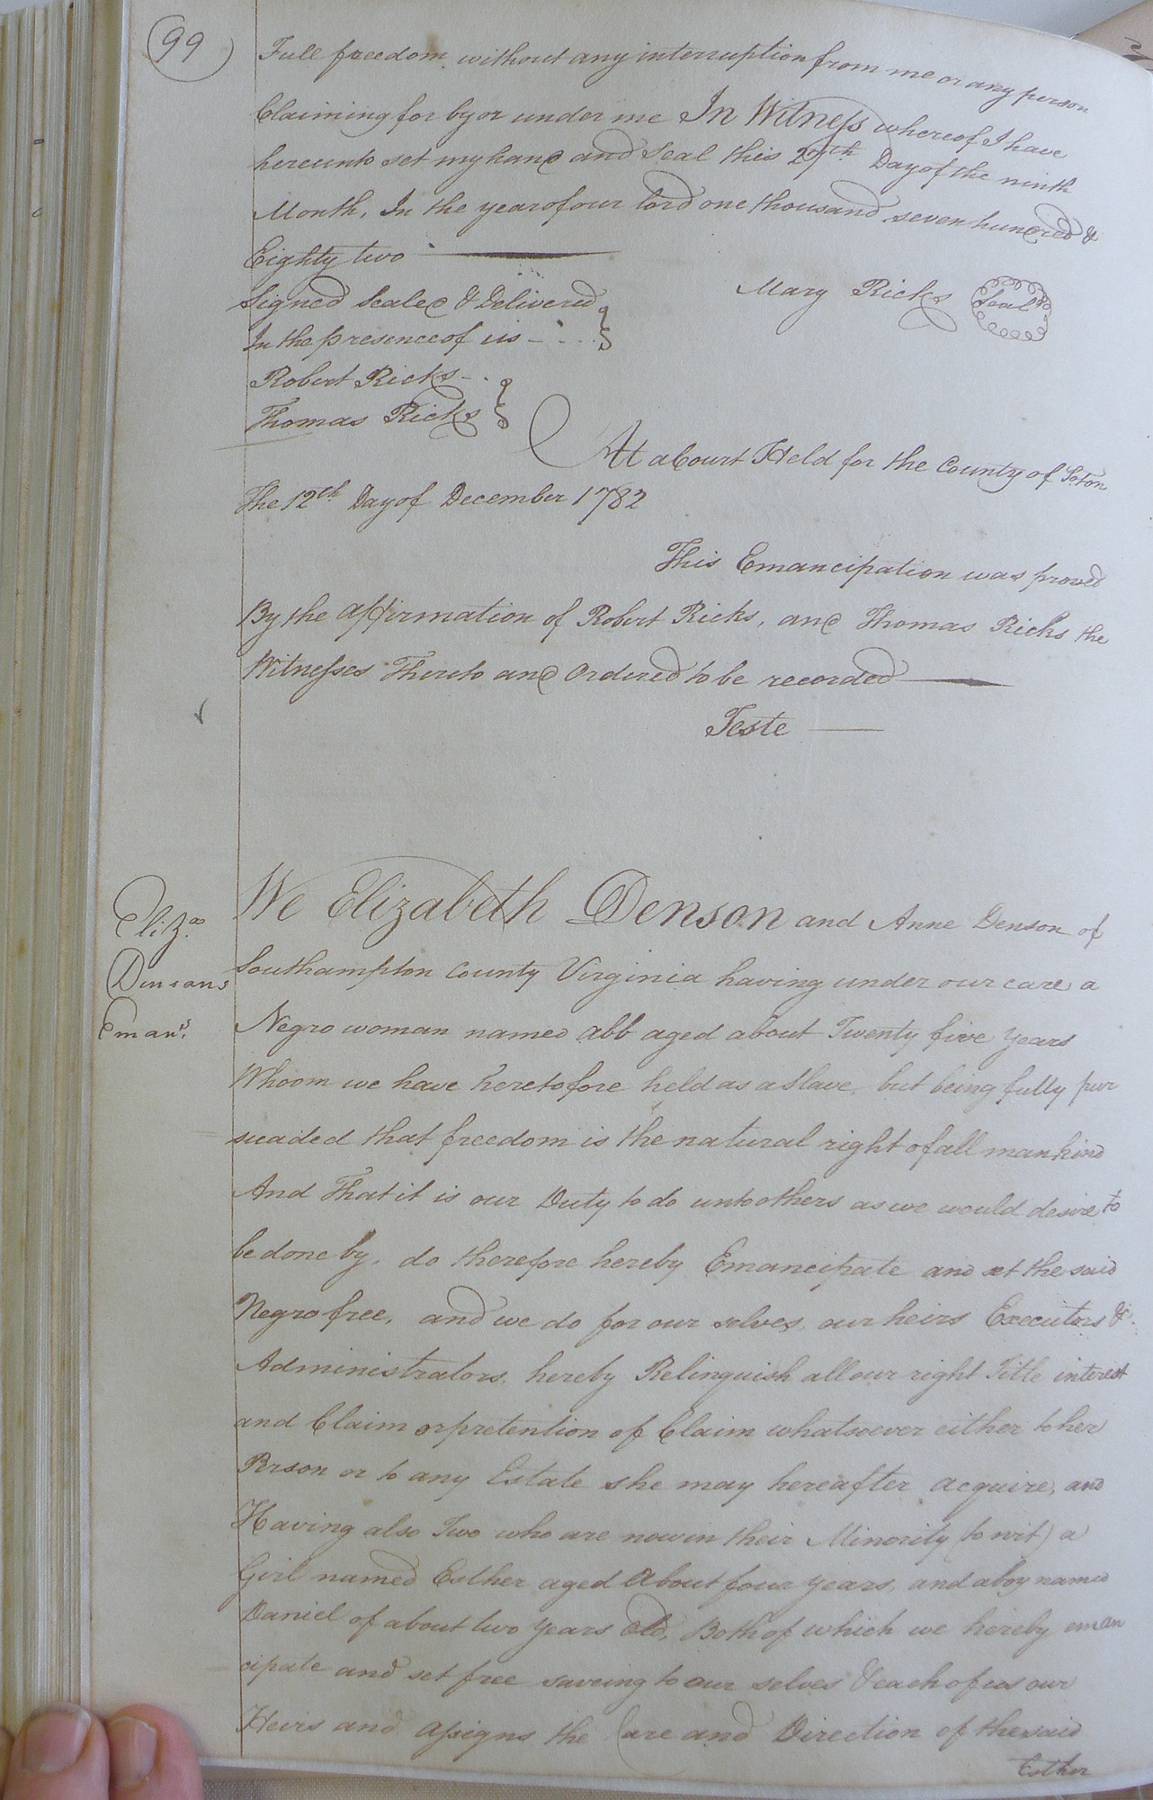 99
Full freedom without any interruption from me or any person
Claiming for by or under me In Witness whereof I have
hereunto set my hand and seal this 27th Day of the ninth
Month, In the year of our lord one thousand seven hundred &
Eighty two
Signed Sealed & Delivered
In the presence of us
Mary Ricks Seal
Robert Ricks
Thomas Ricks
At a Court Held for the County of Soton
The 12th Day of December 1782
This Emancipation was proved
By the affirmation of Robert Ricks, and Thomas Ricks the
Witnesses Thereto and Ordered to be recorded
Teste
Eliza
Densons
Emans
We Elizabeth Denson and Anne Denson of
Southampton County Virginia having under our care a
Negro woman named abb aged about Twenty five years
Whoom we have heretofore held as a slave, but being fully pur
suaded that freedom is the natural right of all mankind
And That it is our Duty to do unto others as we would desire to
be done by, do therefore hereby Emancipate and set the said
Negro free, and we do for our selves, our heirs Executors &
Administrators, hereby Relinquish all our right Title interest
and Claim or pretention of Claim whatsoever either to her
Person or to any Estate she may hereafter acquire, and
Having also Two who are now in their Minority (to wit) a
Girl named Esther aged About four years, and a boy named
Daniel of about two years old, Both of which we hereby eman
cipate and set free saveing to our selves & each of us our
Heirs and assigns the Care and Direction of the said
Esther